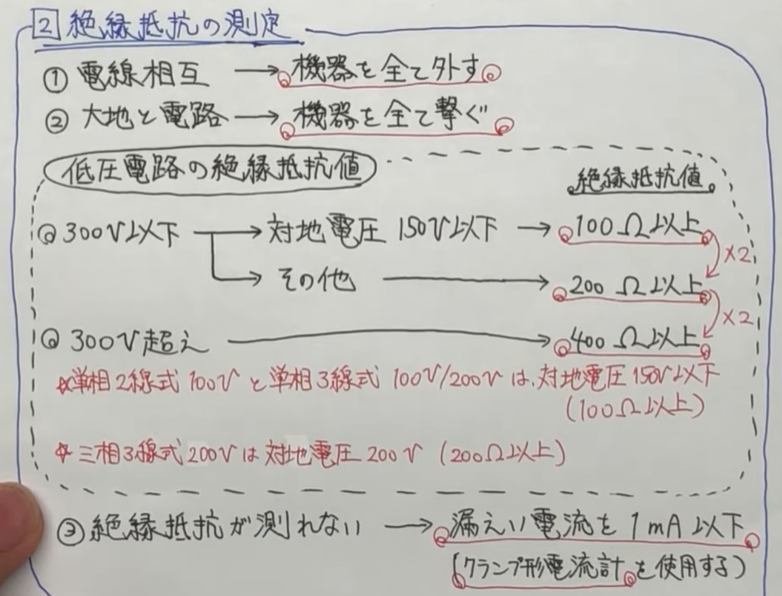 2 絶縁抵抗の測定
① 電線相互 → 機器を全て外す
② 大地と電路 → 機器を全て撃ぐ
低圧電路の絶縁抵抗値
絶縁抵抗値
300V以下 → 対地電圧 150V以下 → 100Ω以上
×2
→ その他 → 200Ω以上
×2
300V超え → 400Ω以上
☆単相2線式100Vと単相3線式 100V/200Vは、対地電圧150V以下
(100Ω以上)
☆三相3線式200Vは対地電圧200V (200Ω以上)
③絶縁抵抗が測れない → 漏えい電流を1mA以下
(クランプ形電流計を使用する)